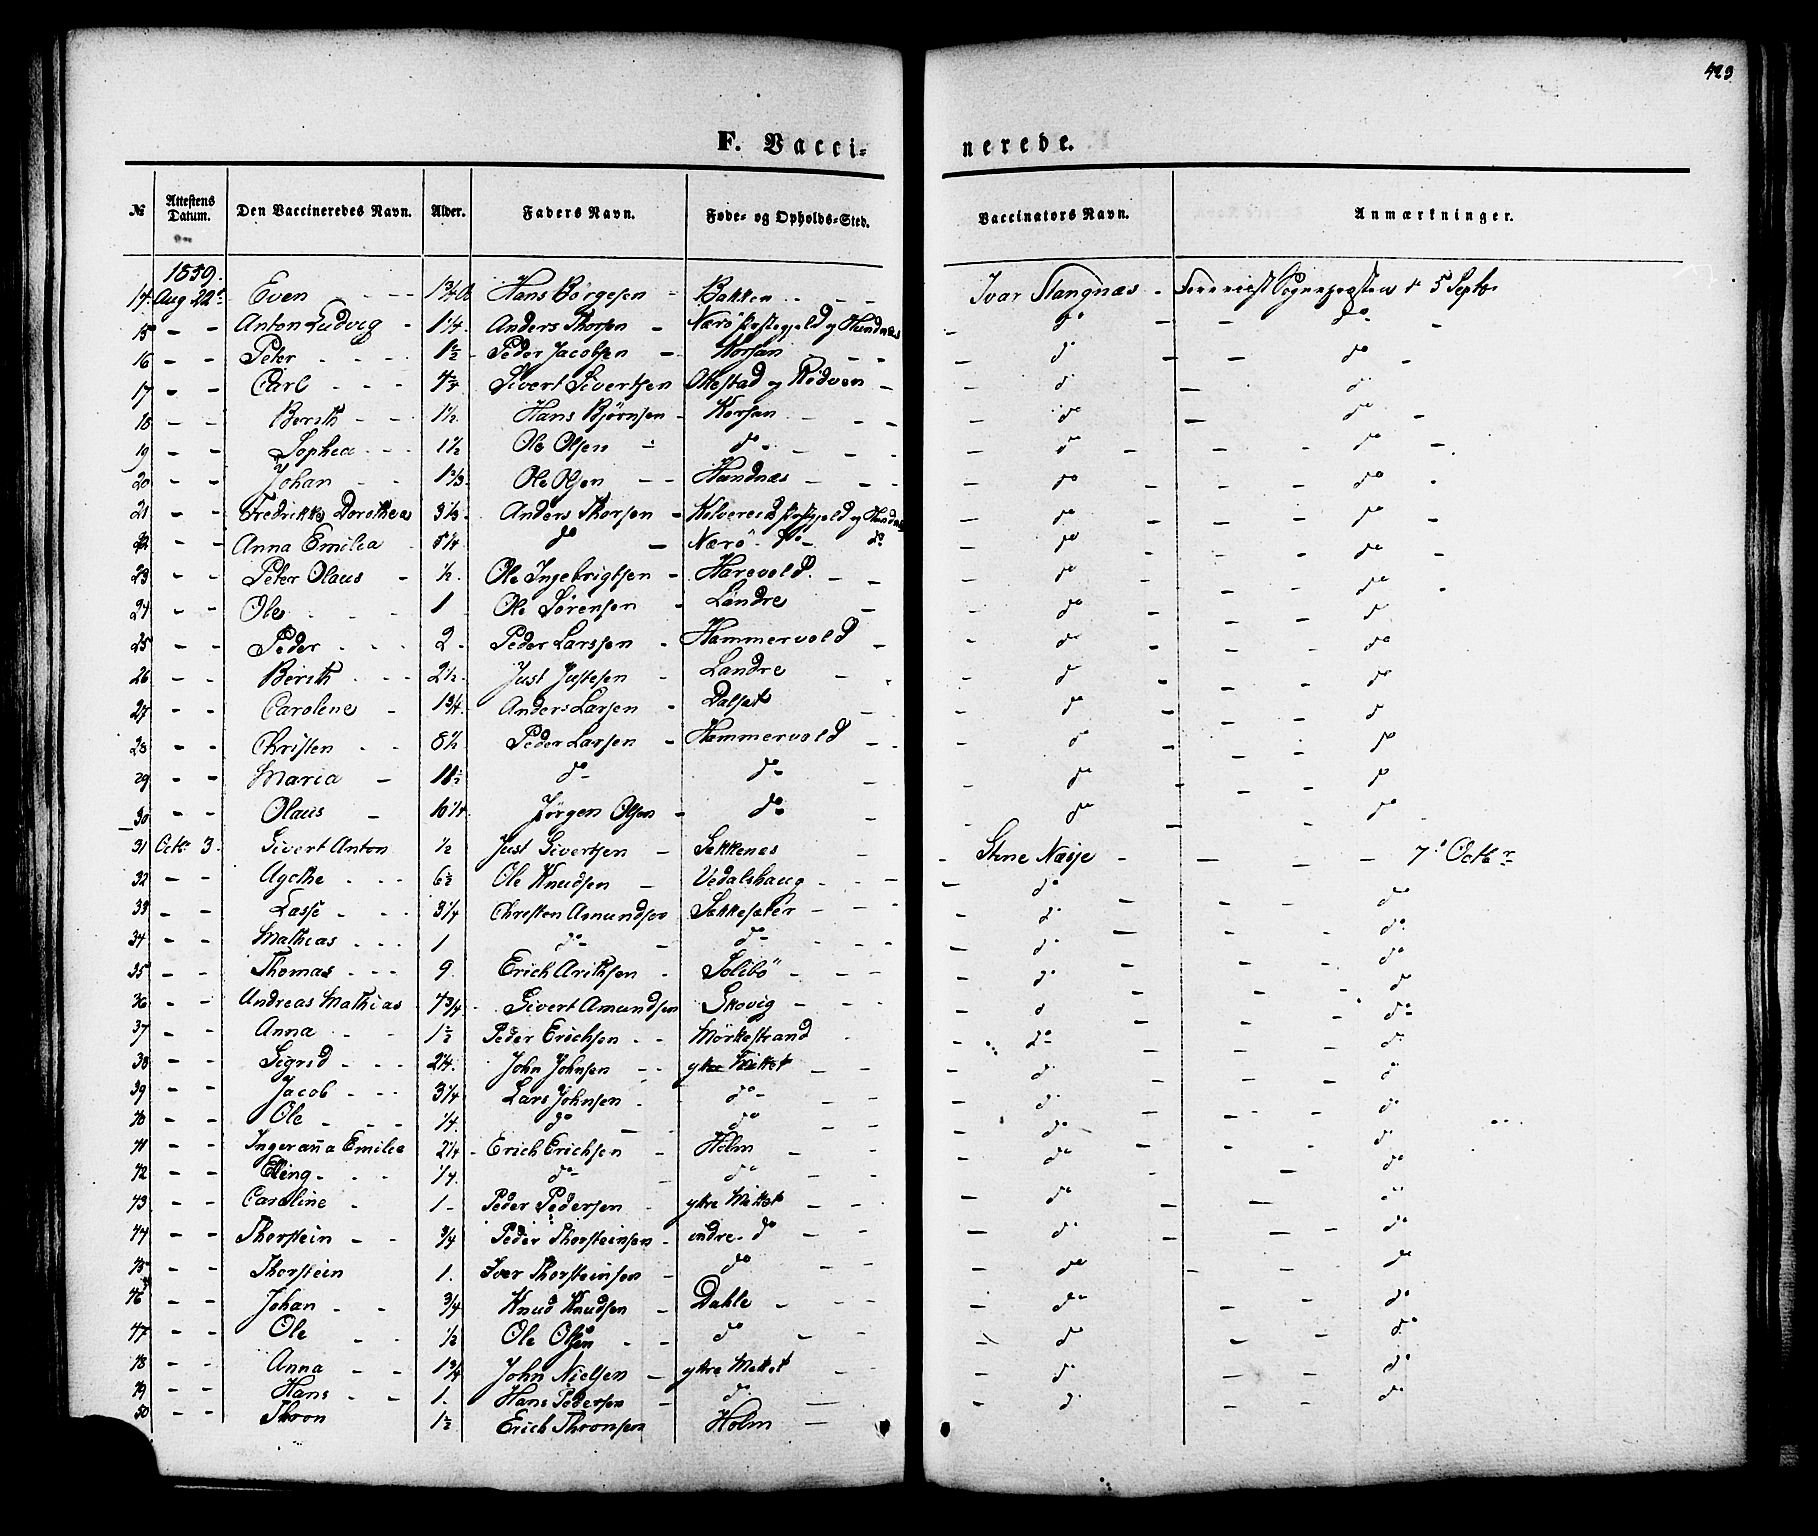 423
F. Vacci- nerede.
№ Attestens Datum. Den Vaccineredes Navn. Alder. Faders Navn. Føde- og Opholds-Sted. Vaccinators Navn. Anmærkninger.
1859.
14. Aug 22 Even 1 3/4 Hans Börgesen Bakken Ivar Stangnæs Foreviist Sognepræsten d 5 Septbr
15 - - Anton Ludvig 1 1/4 Anders Thorsen Nærö Præstegjeld og Hundnæs do do
16 - - Peter 1 1/2 Peder Jacobsen Korsan do do
17 - - Carl Sivert Sivertsen og Rödven do do
18 - - Berith 1 1/2 Hans Bjørnsen Korsan do do
19 - - Sophia 1 1/2 Ole Olsen do do do
20 - - Johan Ole Olsen Hundnæs do do
21 - - Fredrikke Dorothea 3 1/3 Anders Thorsen Kolvereid Præstegjeld og do do
22 - - Anna Emilia 5 1/4 do Nærö do do do do
23 - - Peter Olaus 1/2 Ole Ingebrigtsen Harevold do do
24 - - Ole 1 Ole Sörensen Landre do do
25 - - Peder 2 Peder Larssen Hammervold do do
26 - - Berith 2 1/2 Just Justesen Landre do do
27 - - Carolene 1 3/4 Anders Larsen Dalset do do
28 - - Christen 8 1/2 Peder Larsen Hammervold do do
29 - - Maria do do do do
30 - - Olaus 10 1/4 Jörgen Olsen do do do
31 Octb 3 Sivert Anton 1/2 Just Sivertsen Sekkenes Stene Næsje 7 Octbr
32 - - Agethe 6 1/2 Ole Knudsen Vedalshaug do do
33 - - Lasse 3 1/4 Christen Amundsen Sekkesæter do do
34 - - Mathias 1 do do do do
35 - - Thomas 9 Erich Arithsen Solibö do do
36 - - Andreas Mathias 4 3/4 Sivert Amundsen Skovig do do
37 - - Anna 1 1/2 Peder Erichsen Mörkestrand do do
38 - - Sigrid 2 1/4 John Johnsen ytre Mittet do do
39 - - Jacob 3 1/4 Lars Johnsen do do do
40 - - Ole 1/4 do do do do
41 - - Ingeranna Emilia 2 1/4 Erich Erichsen Holm do do
42 - - Elling 1/4 do do do do
43 - - Caroline 1 Peder Pedersen ytre Mittet do do
44 - - Thorstein 3/4 Peder Thorsteinsen indre do do do
45 - - Thorstein 1 Iver Thorsteinsen do do do
46 - - Johan 3/4 Knud Knudsen Dahle do do
47 - - Ole 1/2 Ole Olsen do do do
48 - - Anna 1 3/4 John Nielsen ytre Mittet do do
49 - - Hans 1 Hans Pedersen do do do
50 - - Thron 1 1/2 Erich Thronsen Holm